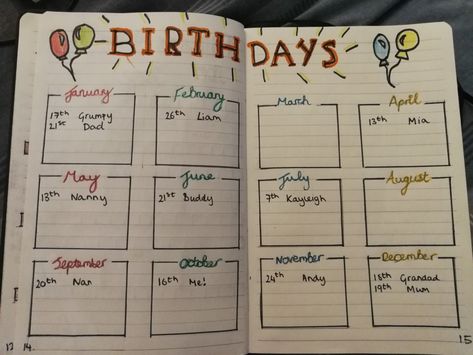 BIRTHDAYS
January
17th Grumpy
21st Dad
February
26th Liam
March
April
13th Mia
May
13th Nanny
June
21st Buddy
July
7th Kayleigh
August
September
20th Nan
October
16th Me!
November
24th Andy
December
15th Grandad
19th Mum
13 14
15